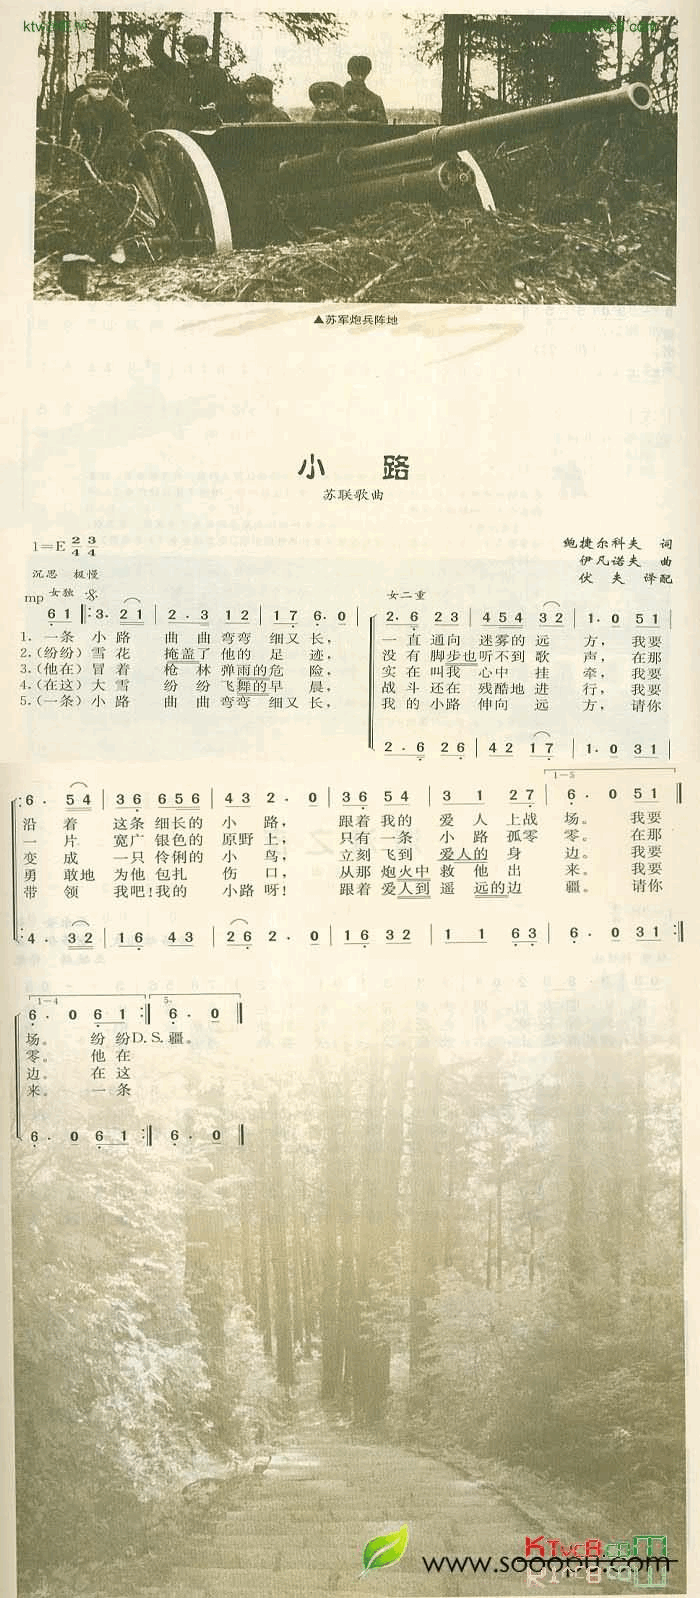 ▲苏军炮兵阵地
小 路
苏联歌曲
1=E 2/4 3/4
鲍捷尔科夫 词
伊凡诺夫 曲
伏 夫 译配
沉思 极慢
mp 女独
女二重
6 1 3. 2 1 2. 3 1 2 1 7 6. 0
2. 6 2 3 4 5 4 3 2 1. 0 5 1
1. 一条 小 路 曲 曲 弯弯 细又 长， 一 直 通向 迷雾的 远 方， 我要
2.(纷纷) 雪 花 掩盖了 他的 足 迹， 没 有 脚步也 听不到 歌 声， 在那
3.(他在) 冒 着 枪 林 弹雨的 危 险， 实 在 叫我 心中 挂 牵， 我要
4.(在这) 大 雪 纷 纷 飞舞的 早 晨， 战 斗 还在 残酷地 进 行， 我要
5.(一条) 小 路 曲 曲 弯弯 细又 长， 我 的 小路 伸向 远 方， 请你
2. 6 2 6 4 2 1 7 1. 0 3 1
1-5
6. 5 4 3 6 6 5 6 4 3 2. 0 3 6 5 4 3 1 2 7 6. 0 5 1
沿 着 这条 细长的 小 路， 跟着 我的 爱 人 上战 场。 我要
一 片 宽广 银色的 原野 上， 只有 一条 小 路 孤零 零。 在那
变 成 一只 伶俐的 小 鸟， 立刻 飞到 爱人的 身 边。 我要
勇 敢地 为他 包扎 伤 口， 从那 炮火中 救 他 出 来。 我要
带 领 我吧！我的 小路 呀！ 跟着 爱人到 遥 远的 边 疆。 请你
4. 3 2 1 6 4 3 2 6 2. 0 1 6 3 2 1 1 6 3 6. 0 3 1
1-4 5.
6. 0 6 1 6. 0
场。 纷纷 D.S. 疆。
零。 他在
边。 在这
来。 一条
6. 0 6 1 6. 0
www.sooopu.com
KTvc8.com